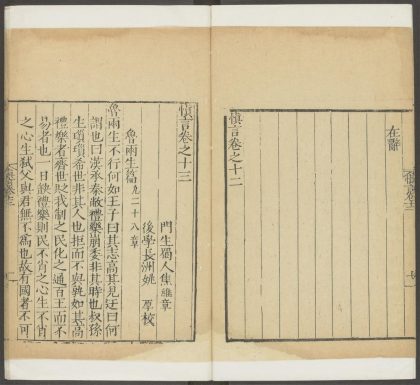 在辭
慎言卷之十二
慎言卷之十三
門生蜀人焦維章
後學長洲姚 校
魯兩生篇九二十八章
魯兩生不行何如王子曰其志高其見迂曰何
謂也曰漢承秦敝禮樂崩委非其時也叔孫
生瑣瑣希世非其人也拒而不與孰如其高
禮樂者齊世賊我制之民化之通百王而不
易者也一日缺禮樂則民不肖之心生不肖
之心生弒父與君無不爲也故有國者不可